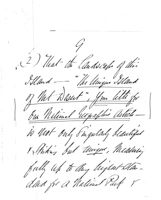 9
2) That the landscape of this
Island — "The Unique Island
of Mt Desert" - you call for
our National Geographic Article -
is not only singularly beautiful
& striking, but unique, measuring
fully up to the highest stan-
dard for a National Park &